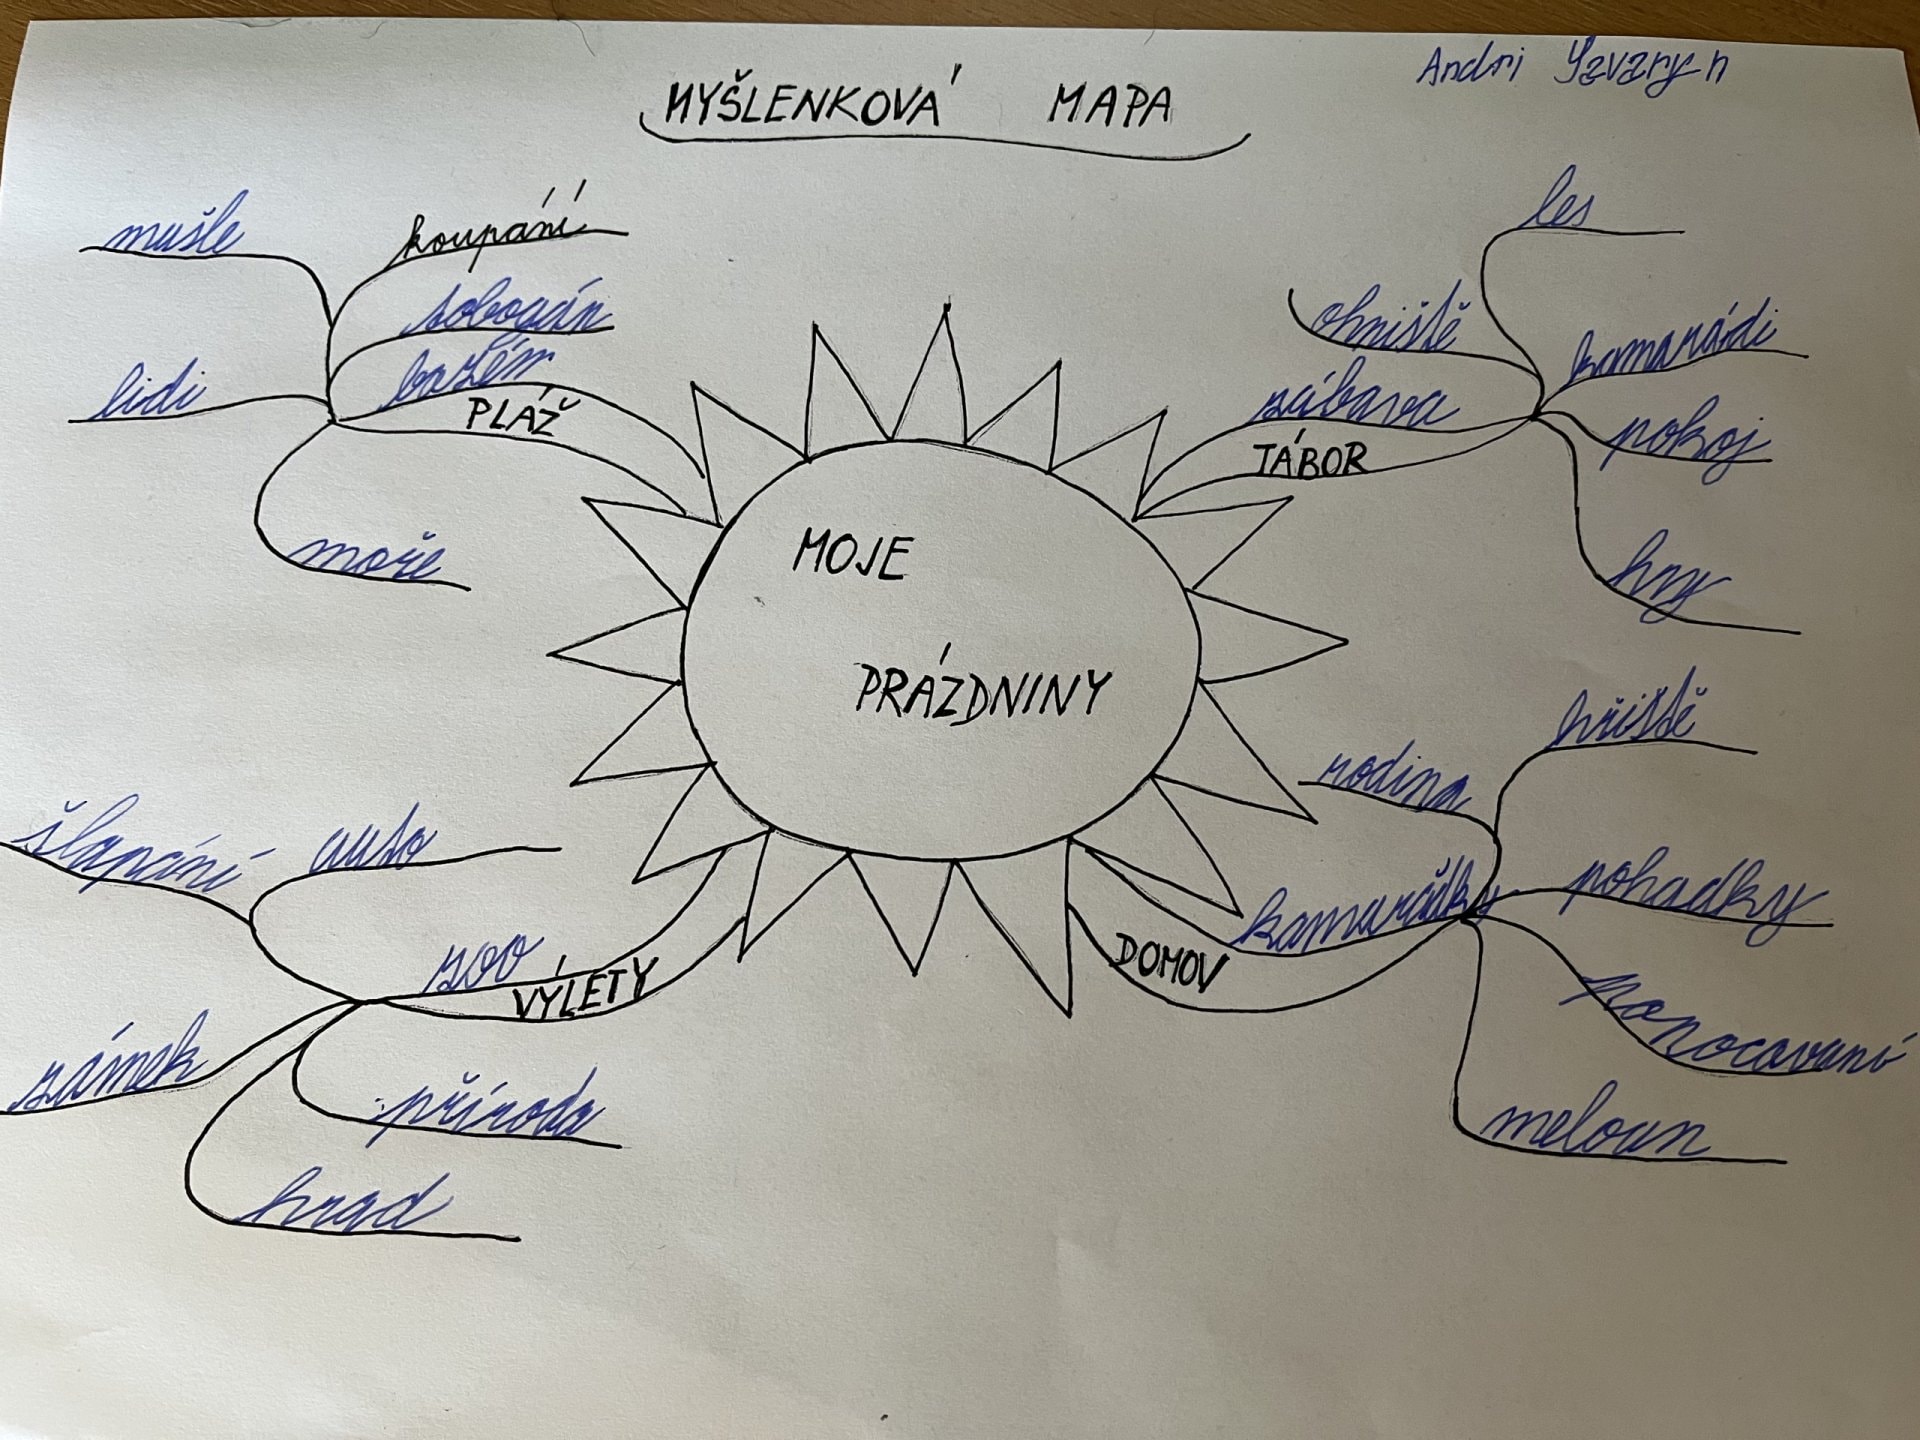 MYŠLENKOVÁ MAPA
Andrij Yavaryn
mušle
koupání
tobogán
bazém
lidi
PLÁŽ
moře
les
ohniště
kamarádi
zábava
pokoj
TÁBOR
hry
MOJE
PRÁZDNINY
hřiště
rodina
pohadky
kamarádky
DOMOV
nanocovaní
meloun
šlapání
auto
zoo
VÝLETY
zámek
příroda
hrad